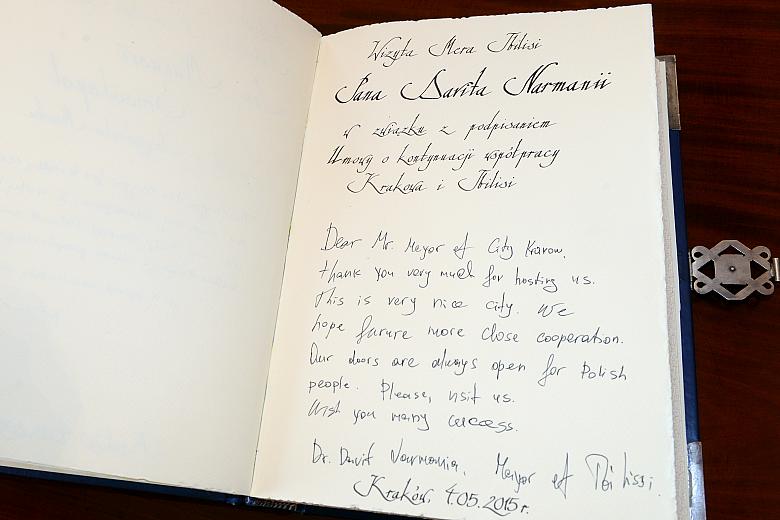 Wizyta Mera Tbilisi
Pana Davita Narmanii
w związku z podpisaniem
Umowy o kontynuacji współpracy
Krakowa i Tbilisi
Dear Mr. Meyor of City Krakow,
thank you very much for hosting us.
This is very nice city. We
hope furure more close cooperation.
Our doors are always open for Polish
people. Please, visit us.
Wish you many success.
Dr. Davit Narmania, Meyor of Tbilissi.
Kraków, 4.05.2015 r.